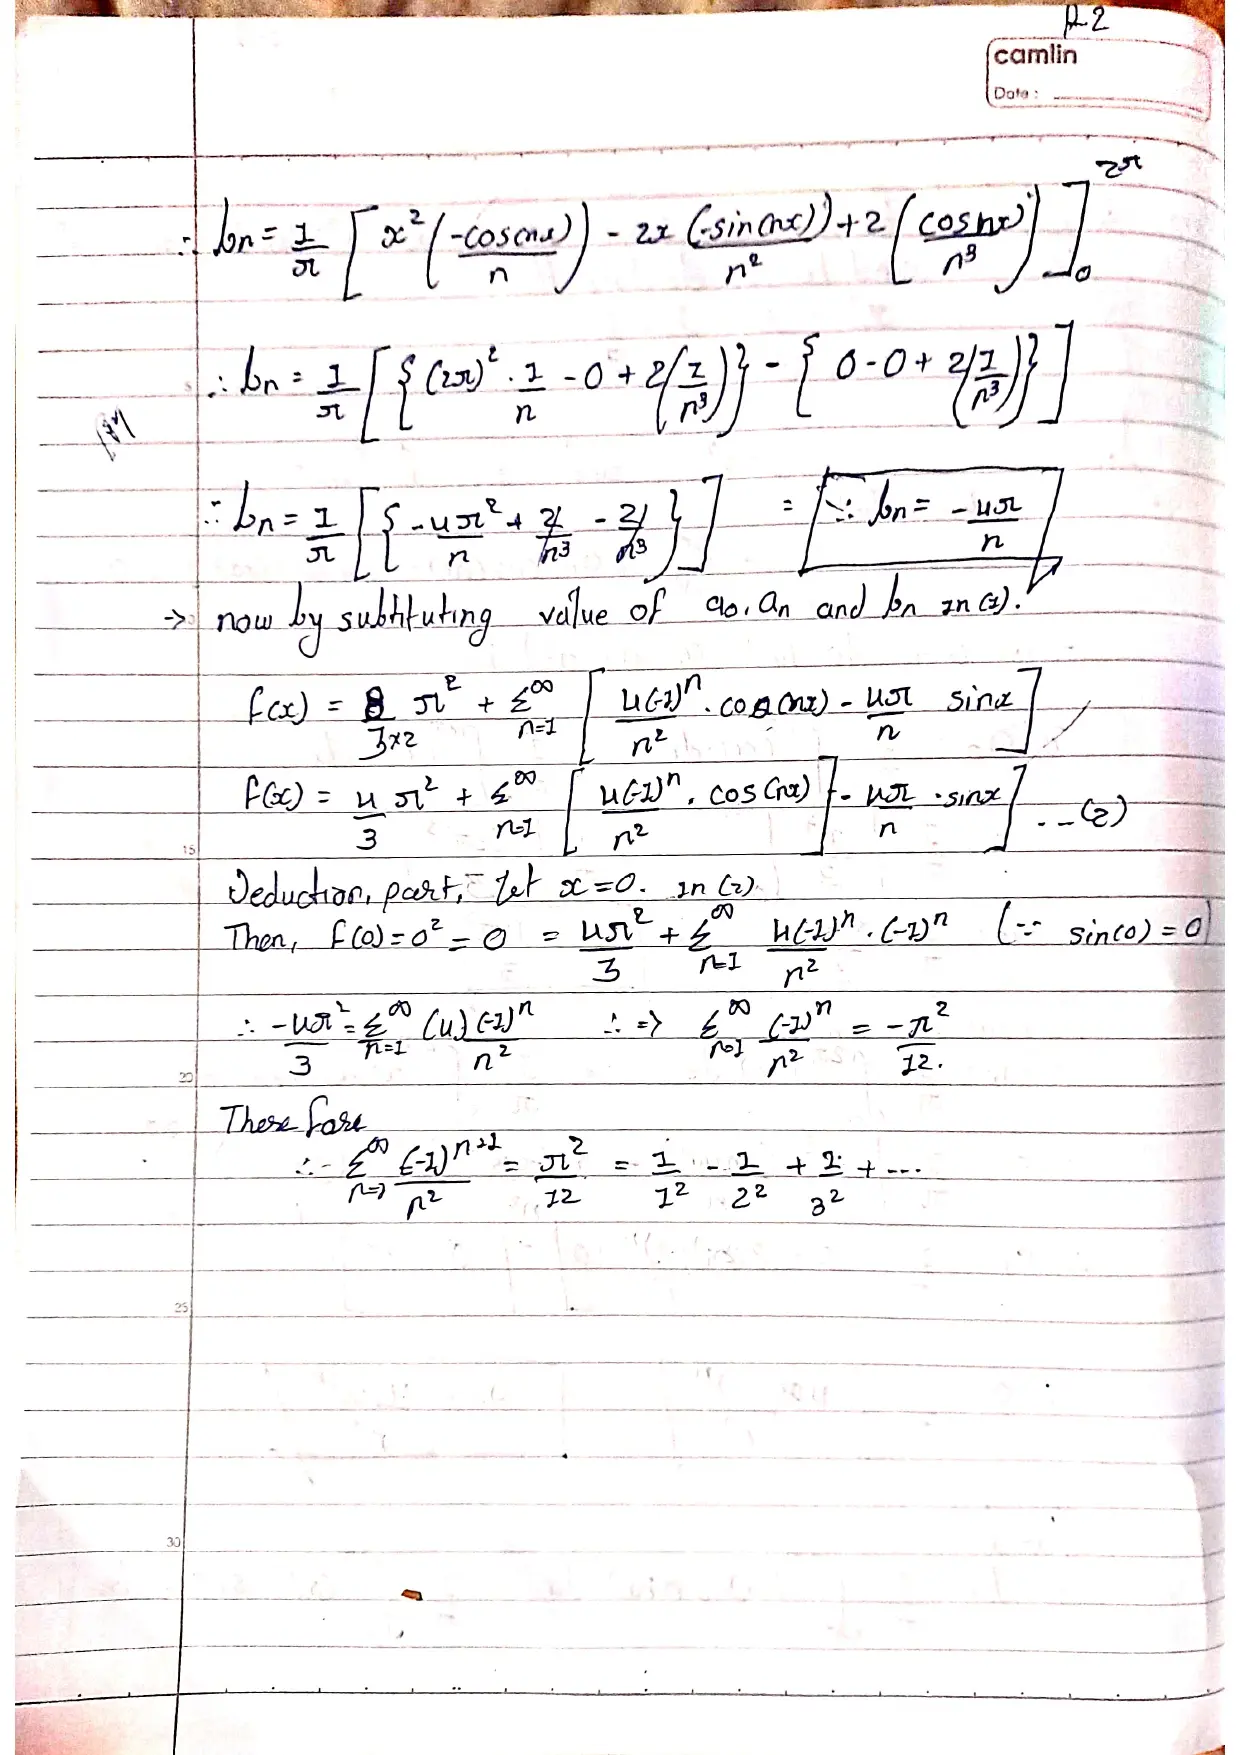 P-2
camlin
Date :
∴ bn = 1/π [ x² (-cos(nx)/n) - 2x (-sin(nx))/n² + 2 (cosnx/n³) ]₀^2π
∴ bn = 1/π [ { (2π)² · 1/n - 0 + 2(1/n³) } - { 0 - 0 + 2(1/n³) } ]
∴ bn = 1/π [ { -4π²/n + 2/n³ - 2/n³ } ] = ∴ bn = -4π/n
→ now by subtituting value of a0, an and bn in (1).
f(x) = 8/3×2 π² + Σ^∞ n=1 [ 4(-1)^n/n² · cos(nx) - 4π/n sinx ]
f(x) = 4/3 π² + Σ^∞ n=1 [ 4(-1)^n/n² · cos(nx) ] - 4π/n · sinx ] --(2)
15
Deduction part, Let x=0. in (2)
Then, f(0) = 0² = 0 = 4π²/3 + Σ^∞ n=1 4(-1)^n/n² · (-1)^n (∵ sin(0) = 0)
∴ -4π²/3 = Σ^∞ n=1 (4)(-1)^n/n² ∴ => Σ^∞ n=1 (-1)^n/n² = -π²/12.
20
Therefore
∴ Σ^∞ (-1)^n+1/n² = π²/12 = 1/1² - 1/2² + 1/3² + ...
25
30